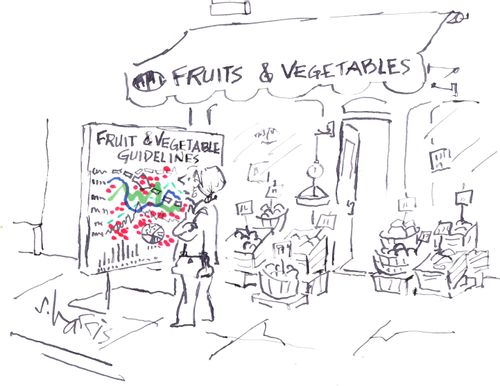 FRUITS & VEGETABLES
FRUIT & VEGETABLE
GUIDELINES
S. harris